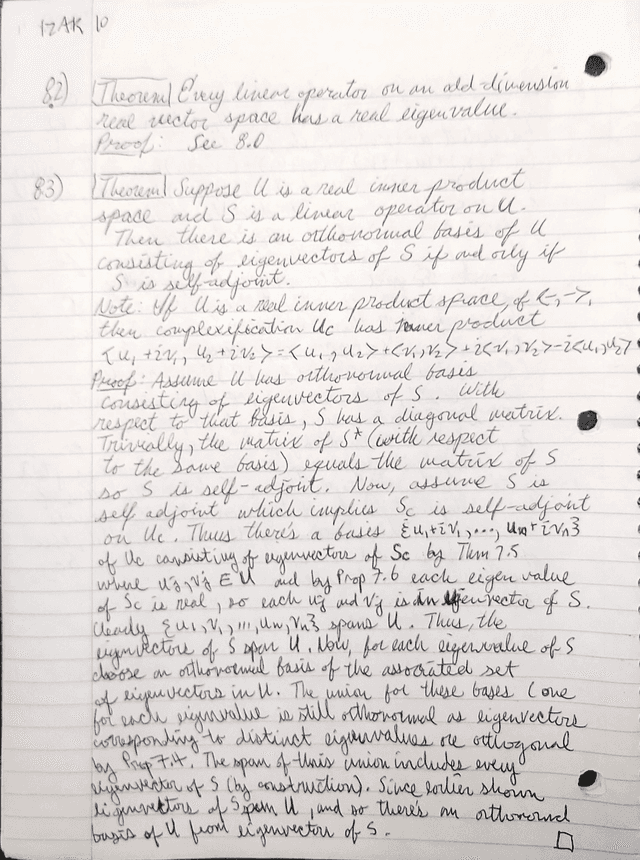 IZAK 10
8.2) Theorem Every linear operator on an odd-dimension
real vector space has a real eigenvalue.
Proof: See 8.0
8.3) Theorem Suppose U is a real inner product
space and S is a linear operator on U.
Then there is an orthonormal basis of U
consisting of eigenvectors of S if and only if
S is self-adjoint.
Note: If U is a real inner product space, of <-,->,
then complexification Uc has inner product
<u₁+iv₁, u₂+iv₂>=<u₁,u₂>+<v₁,v₂>+i<v₁,v₂>-i<u₁,u₂>
Proof: Assume U has orthonormal basis
consisting of eigenvectors of S. With
respect to that basis, S has a diagonal matrix.
Trivially, the matrix of S* (with respect
to the same basis) equals the matrix of S
so S is self-adjoint. Now, assume S is
self adjoint which implies Sc is self-adjoint
on Uc. Thus there's a basis {u₁+iv₁,..., um+ivn}
of Uc consisting of eigenvectors of Sc by Thm 7.5
where uj, vj ∈ U and by Prop 7.6 each eigen value
of Sc is real, so each uj and vj is an eigenvector of S.
Clearly {u₁,v₁,...,um,vn} spans U. Thus, the
eigenvectors of S span U. Now, for each eigenvalue of S
choose an orthonormal basis of the associated set
of eigenvectors in U. The union for these bases (one
for each eigenvalue is still orthonormal as eigenvectors
corresponding to distinct eigenvalues are orthogonal
by Prop 7.4. The span of this union includes every
eigenvector of S (by construction). Since earlier shown
eigenvectors of S span U, and so there's an orthonormal
basis of U from eigenvector of S. □